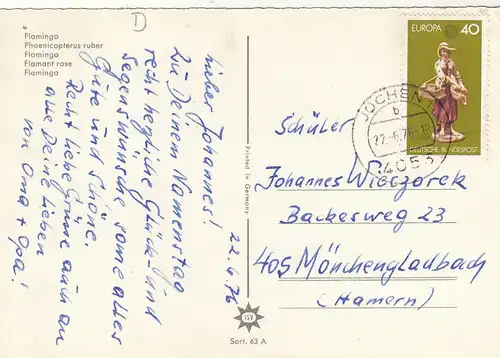 D
Flamingo
Phoenicopterus ruber
Flamingo
Flamant rose
Flamingo
22.6.76
Lieber Johannes!
Zu Deinem Namenstag
recht herzliche Glück- und
Segenswünsche sowie alles
Gute und Schöne.
Recht liebe Grüsse auch an
alle Deine Lieben
von Oma + Opa!
Printed in Germany
ISV
Sort. 63 A
EUROPA 40
DEUTSCHE BUNDESPOST
JÜCHEN
b
22.-6.76
4053
Schüler
Johannes Wieczorek
Backesweg 23
405 Mönchengladbach
(Hamern)